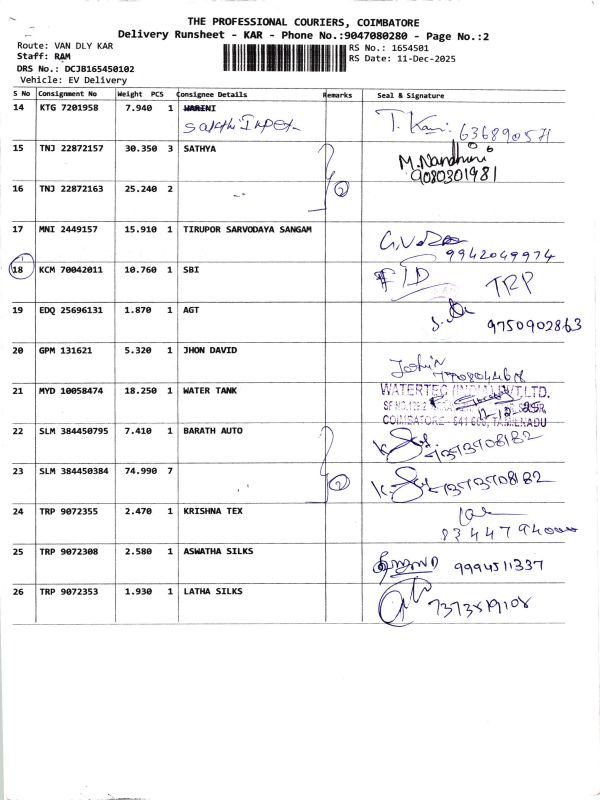 THE PROFESSIONAL COURIERS, COIMBATORE
Delivery Runsheet - KAR - Phone No.:9047080280 - Page No.:2
Route: VAN DLY KAR
RS No.: 1654501
Staff: RAM
RS Date: 11-Dec-2025
DRS No.: DCJB165450102
Vehicle: EV Delivery
S No Consignment No Weight PCS Consignee Details Remarks Seal & Signature
14 KTG 7201958 7.940 1 WARINI
Sakthi T. 636890571
15 TNJ 22872157 30.350 3 SATHYA M. Nandhini
9080301981
16 TNJ 22872163 25.240 2 2
17 MNI 2449157 15.910 1 TIRUPOR SARVODAYA SANGAM
9942049974
18 KCM 70042011 10.760 1 SBI TRP
19 EDQ 25696131 1.870 1 AGT
9750902863
20 GPM 131621 5.320 1 JHON DAVID
21 MYD 10058474 18.250 1 WATER TANK WATERTEC (INDIA) PVT.LTD.
COIMBATORE - 641 606, TAMILNADU
22 SLM 384450795 7.410 1 BARATH AUTO 7373708182
23 SLM 384450384 74.990 7 2 7373708182
24 TRP 9072355 2.470 1 KRISHNA TEX
25 TRP 9072308 2.580 1 ASWATHA SILKS 9994511337
26 TRP 9072353 1.930 1 LATHA SILKS 7373819108